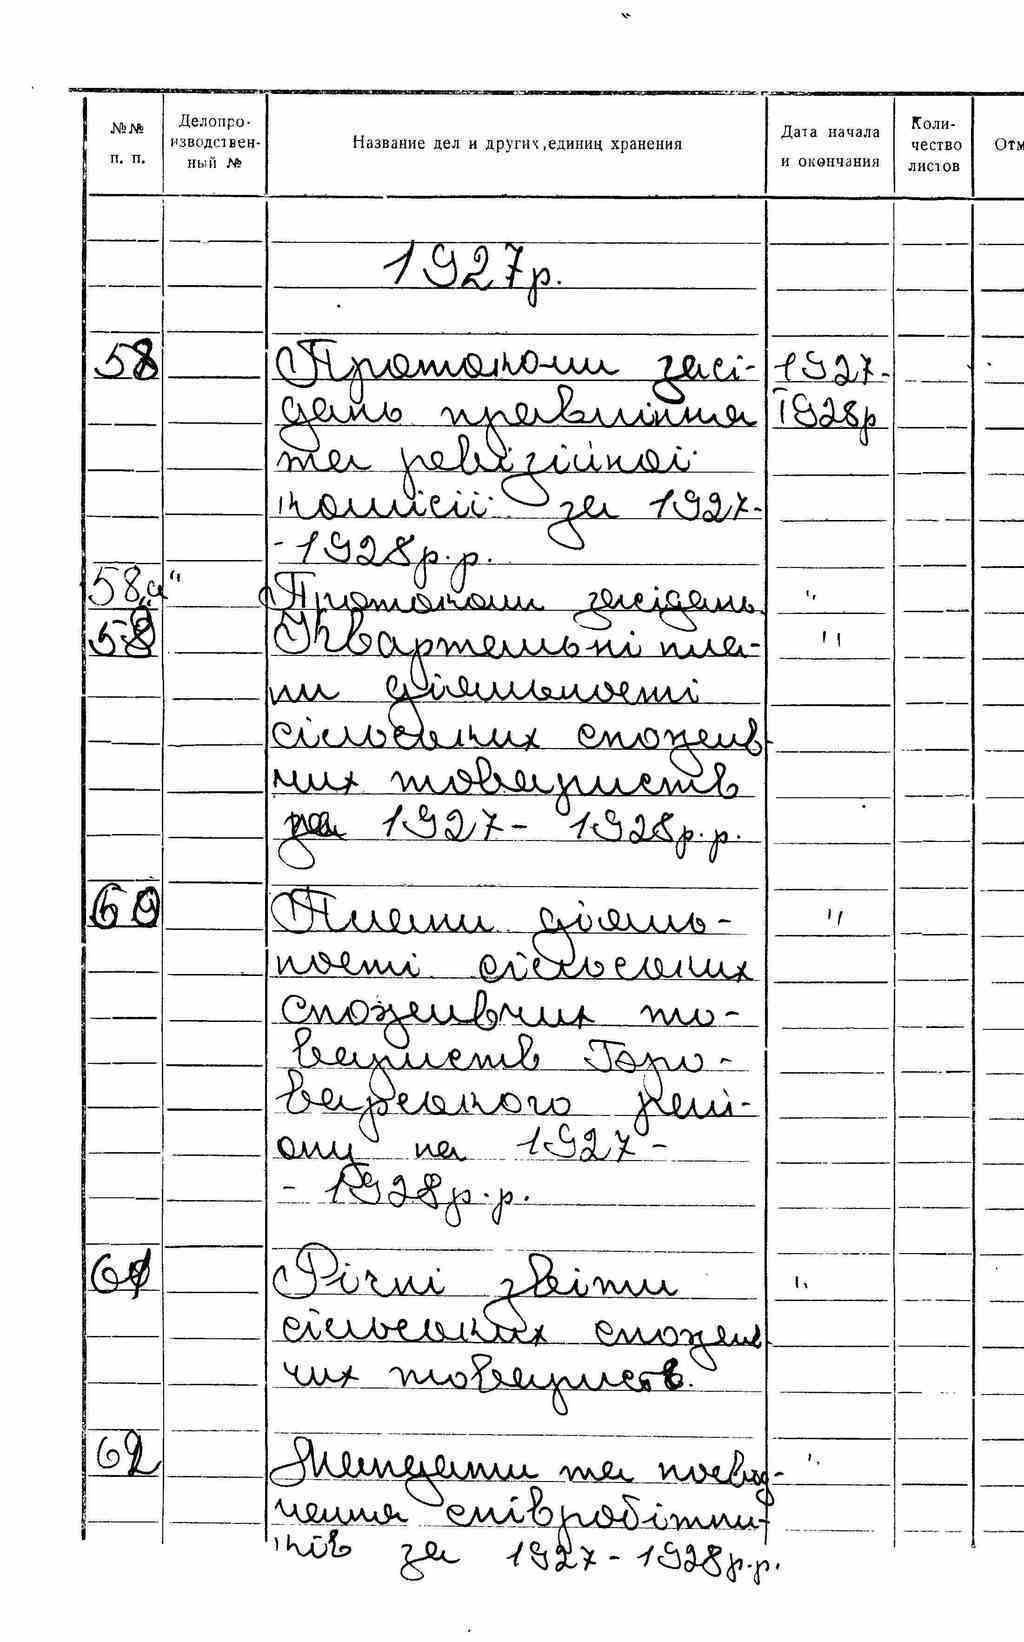 №№ п. п.
Делопро-
изводствен-
ный №
Название дел и других единиц хранения
Дата начала
и окончания
Коли-
чество
листов
Отм
1927р.
58 Протоколи засі- 1927-
дань правління 1928р
та ревізійної
комісії за 1927-
-1928р.р.
58„а" Протоколи засідань "
59 Квартальні пла- "
ни діяльності
сільських спожив-
чих товариств
на 1927- 1928р.р.
60 Плани діяль- "
ності сільських
споживчих то-
вариств Горо-
варського рай-
ону на 1927-
- 1928р.р.
61 Річні звіти "
сільських спожив-
чих товариств.
62 Мандати та посвід- "
чення співробітни-
ків за 1927-1928р.р.